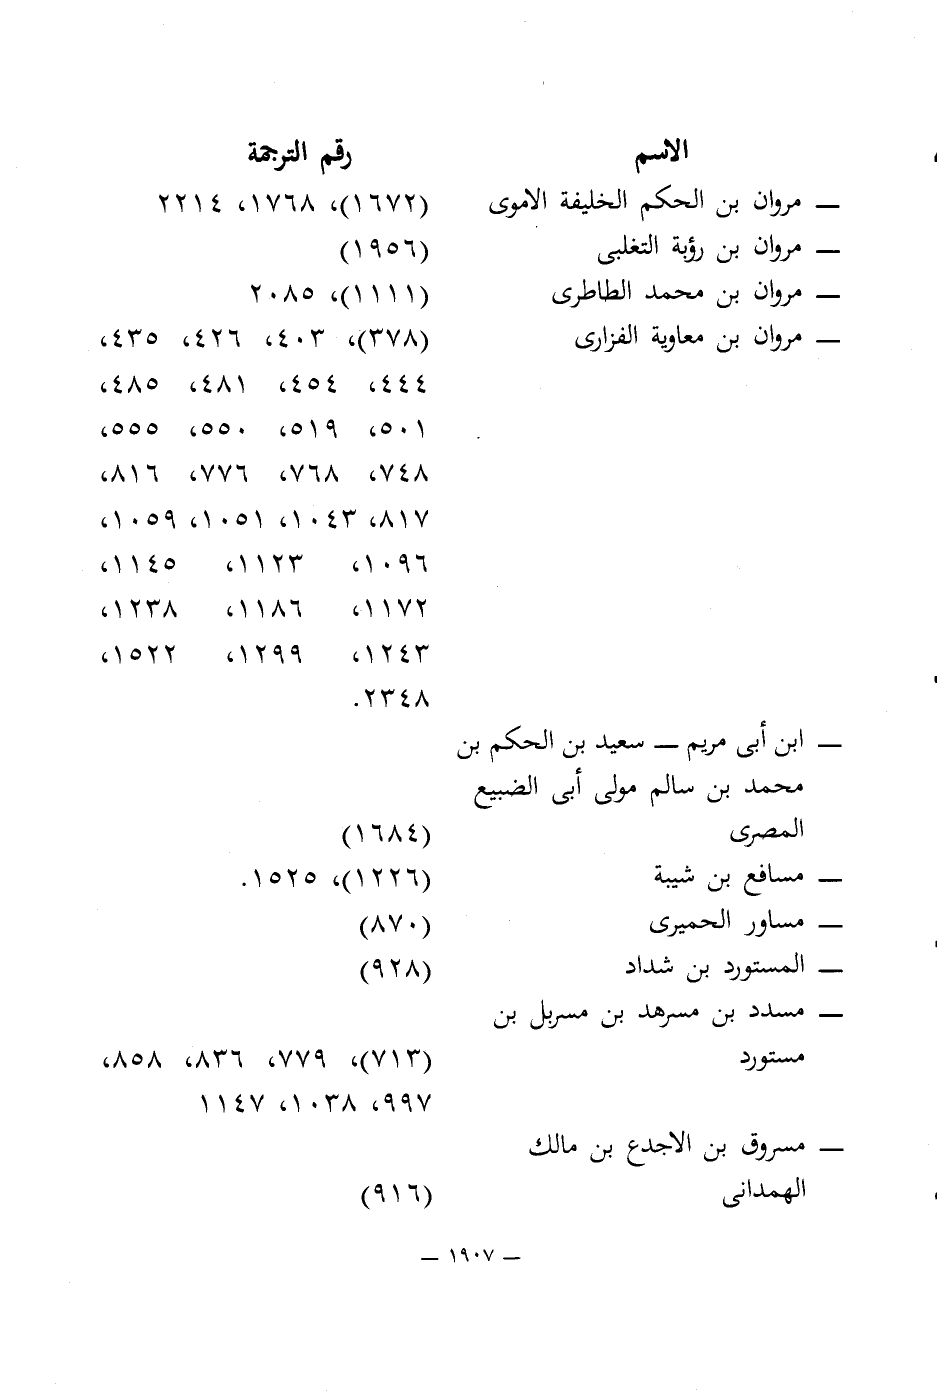 الاسم رقم الترجمة
— مروان بن الحكم الخليفة الاموى (١٦٧٢)، ١٧٦٨، ٢٢١٤
— مروان بن رؤبة التغلبى (١٩٥٦)
— مروان بن محمد الطاطرى (١١١١)، ٢٠٨٥
— مروان بن معاوية الفزارى (٣٧٨)، ٤٠٣، ٤٢٦، ٤٣٥،
٤٤٤، ٤٥٤، ٤٨١، ٤٨٥،
٥٠١، ٥١٩، ٥٥٠، ٥٥٥،
٧٤٨، ٧٦٨، ٧٧٦، ٨١٦،
٨١٧، ١٠٤٣، ١٠٥١، ١٠٥٩،
١٠٩٦، ١١٢٣، ١١٤٥،
١١٧٢، ١١٨٦، ١٢٣٨،
١٢٤٣، ١٢٩٩، ١٥٢٢،
٢٣٤٨.
— ابن أبى مريم — سعيد بن الحكم بن
محمد بن سالم مولى أبى الضبيع
المصرى (١٦٨٤)
— مسافع بن شيبة (١٢٢٦)، ١٥٢٥.
— مساور الحميرى (٨٧٠)
— المستورد بن شداد (٩٢٨)
— مسدد بن مسرهد بن مسربل بن
مستورد (٧١٣)، ٧٧٩، ٨٣٦، ٨٥٨،
٩٩٧، ١٠٣٨، ١١٤٧
— مسروق بن الاجدع بن مالك
الهمدانى (٩١٦)
— ١٩٠٧ —